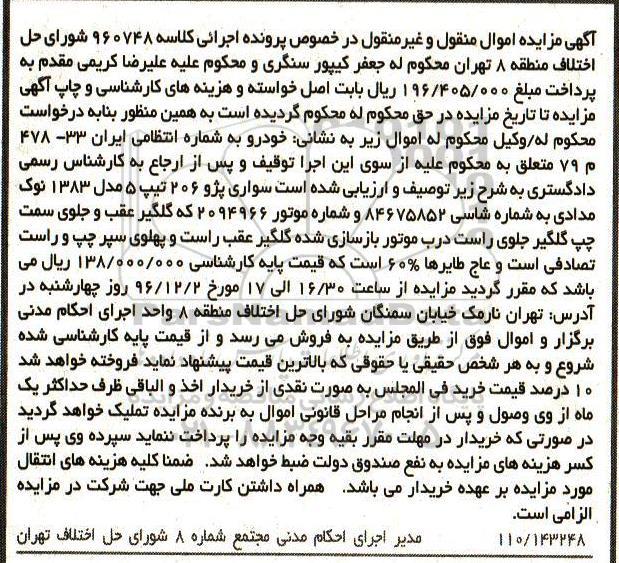 آگهی مزایده اموال منقول و غیرمنقول در خصوص پرونده اجرائی کلاسه ۹۶۰۷۴۸ شورای حل
اختلاف منطقه ۸ تهران محکوم له جعفر کیپور سنگری و محکوم علیه علیرضا کریمی مقدم به
پرداخت مبلغ ۱۹۶/۴۰۵/۰۰۰ ریال بابت اصل خواسته و هزینه های کارشناسی و چاپ آگهی
مزایده تا تاریخ مزایده در حق محکوم له محکوم گردیده است به همین منظور بنابه درخواست
محکوم له/وکیل محکوم له اموال زیر به نشانی: خودرو به شماره انتظامی ایران ۳۳- ۴۷۸
م ۷۹ متعلق به محکوم علیه از سوی این اجرا توقیف و پس از ارجاع به کارشناس رسمی
دادگستری به شرح زیر توصیف و ارزیابی شده است سواری پژو ۲۰۶ تیپ ۵ مدل ۱۳۸۳ نوک
مدادی به شماره شاسی ۸۴۶۷۵۸۵۲ و شماره موتور ۲۰۹۴۹۶۶ که گلگیر عقب و جلوی سمت
چپ گلگیر جلوی راست درب موتور بازسازی شده گلگیر عقب راست و پهلوی سپر چپ و راست
تصادفی است و عاج طایرها ۶۰% است که قیمت پایه کارشناسی ۱۳۸/۰۰۰/۰۰۰ ریال می
باشد که مقرر گردید مزایده از ساعت ۱۶/۳۰ الی ۱۷ مورخ ۹۶/۱۲/۲ روز چهارشنبه در
آدرس: تهران نارمک خیابان سمنگان شورای حل اختلاف منطقه ۸ واحد اجرای احکام مدنی
برگزار و اموال فوق از طریق مزایده به فروش می رسد و از قیمت پایه کارشناسی شده
شروع و به هر شخص حقیقی یا حقوقی که بالاترین قیمت پیشنهاد نماید فروخته خواهد شد
۱۰ درصد قیمت خرید فی المجلس به صورت نقدی از خریدار اخذ و الباقی ظرف حداکثر یک
ماه از وی وصول و پس از انجام مراحل قانونی اموال به برنده مزایده تملیک خواهد گردید
در صورتی که خریدار در مهلت مقرر بقیه وجه مزایده را پرداخت ننماید سپرده وی پس از
کسر هزینه های مزایده به نفع صندوق دولت ضبط خواهد شد. ضمنا کلیه هزینه های انتقال
مورد مزایده بر عهده خریدار می باشد. همراه داشتن کارت ملی جهت شرکت در مزایده
الزامی است.
۱۱۰/۱۴۳۲۴۸ مدیر اجرای احکام مدنی مجتمع شماره ۸ شورای حل اختلاف تهران